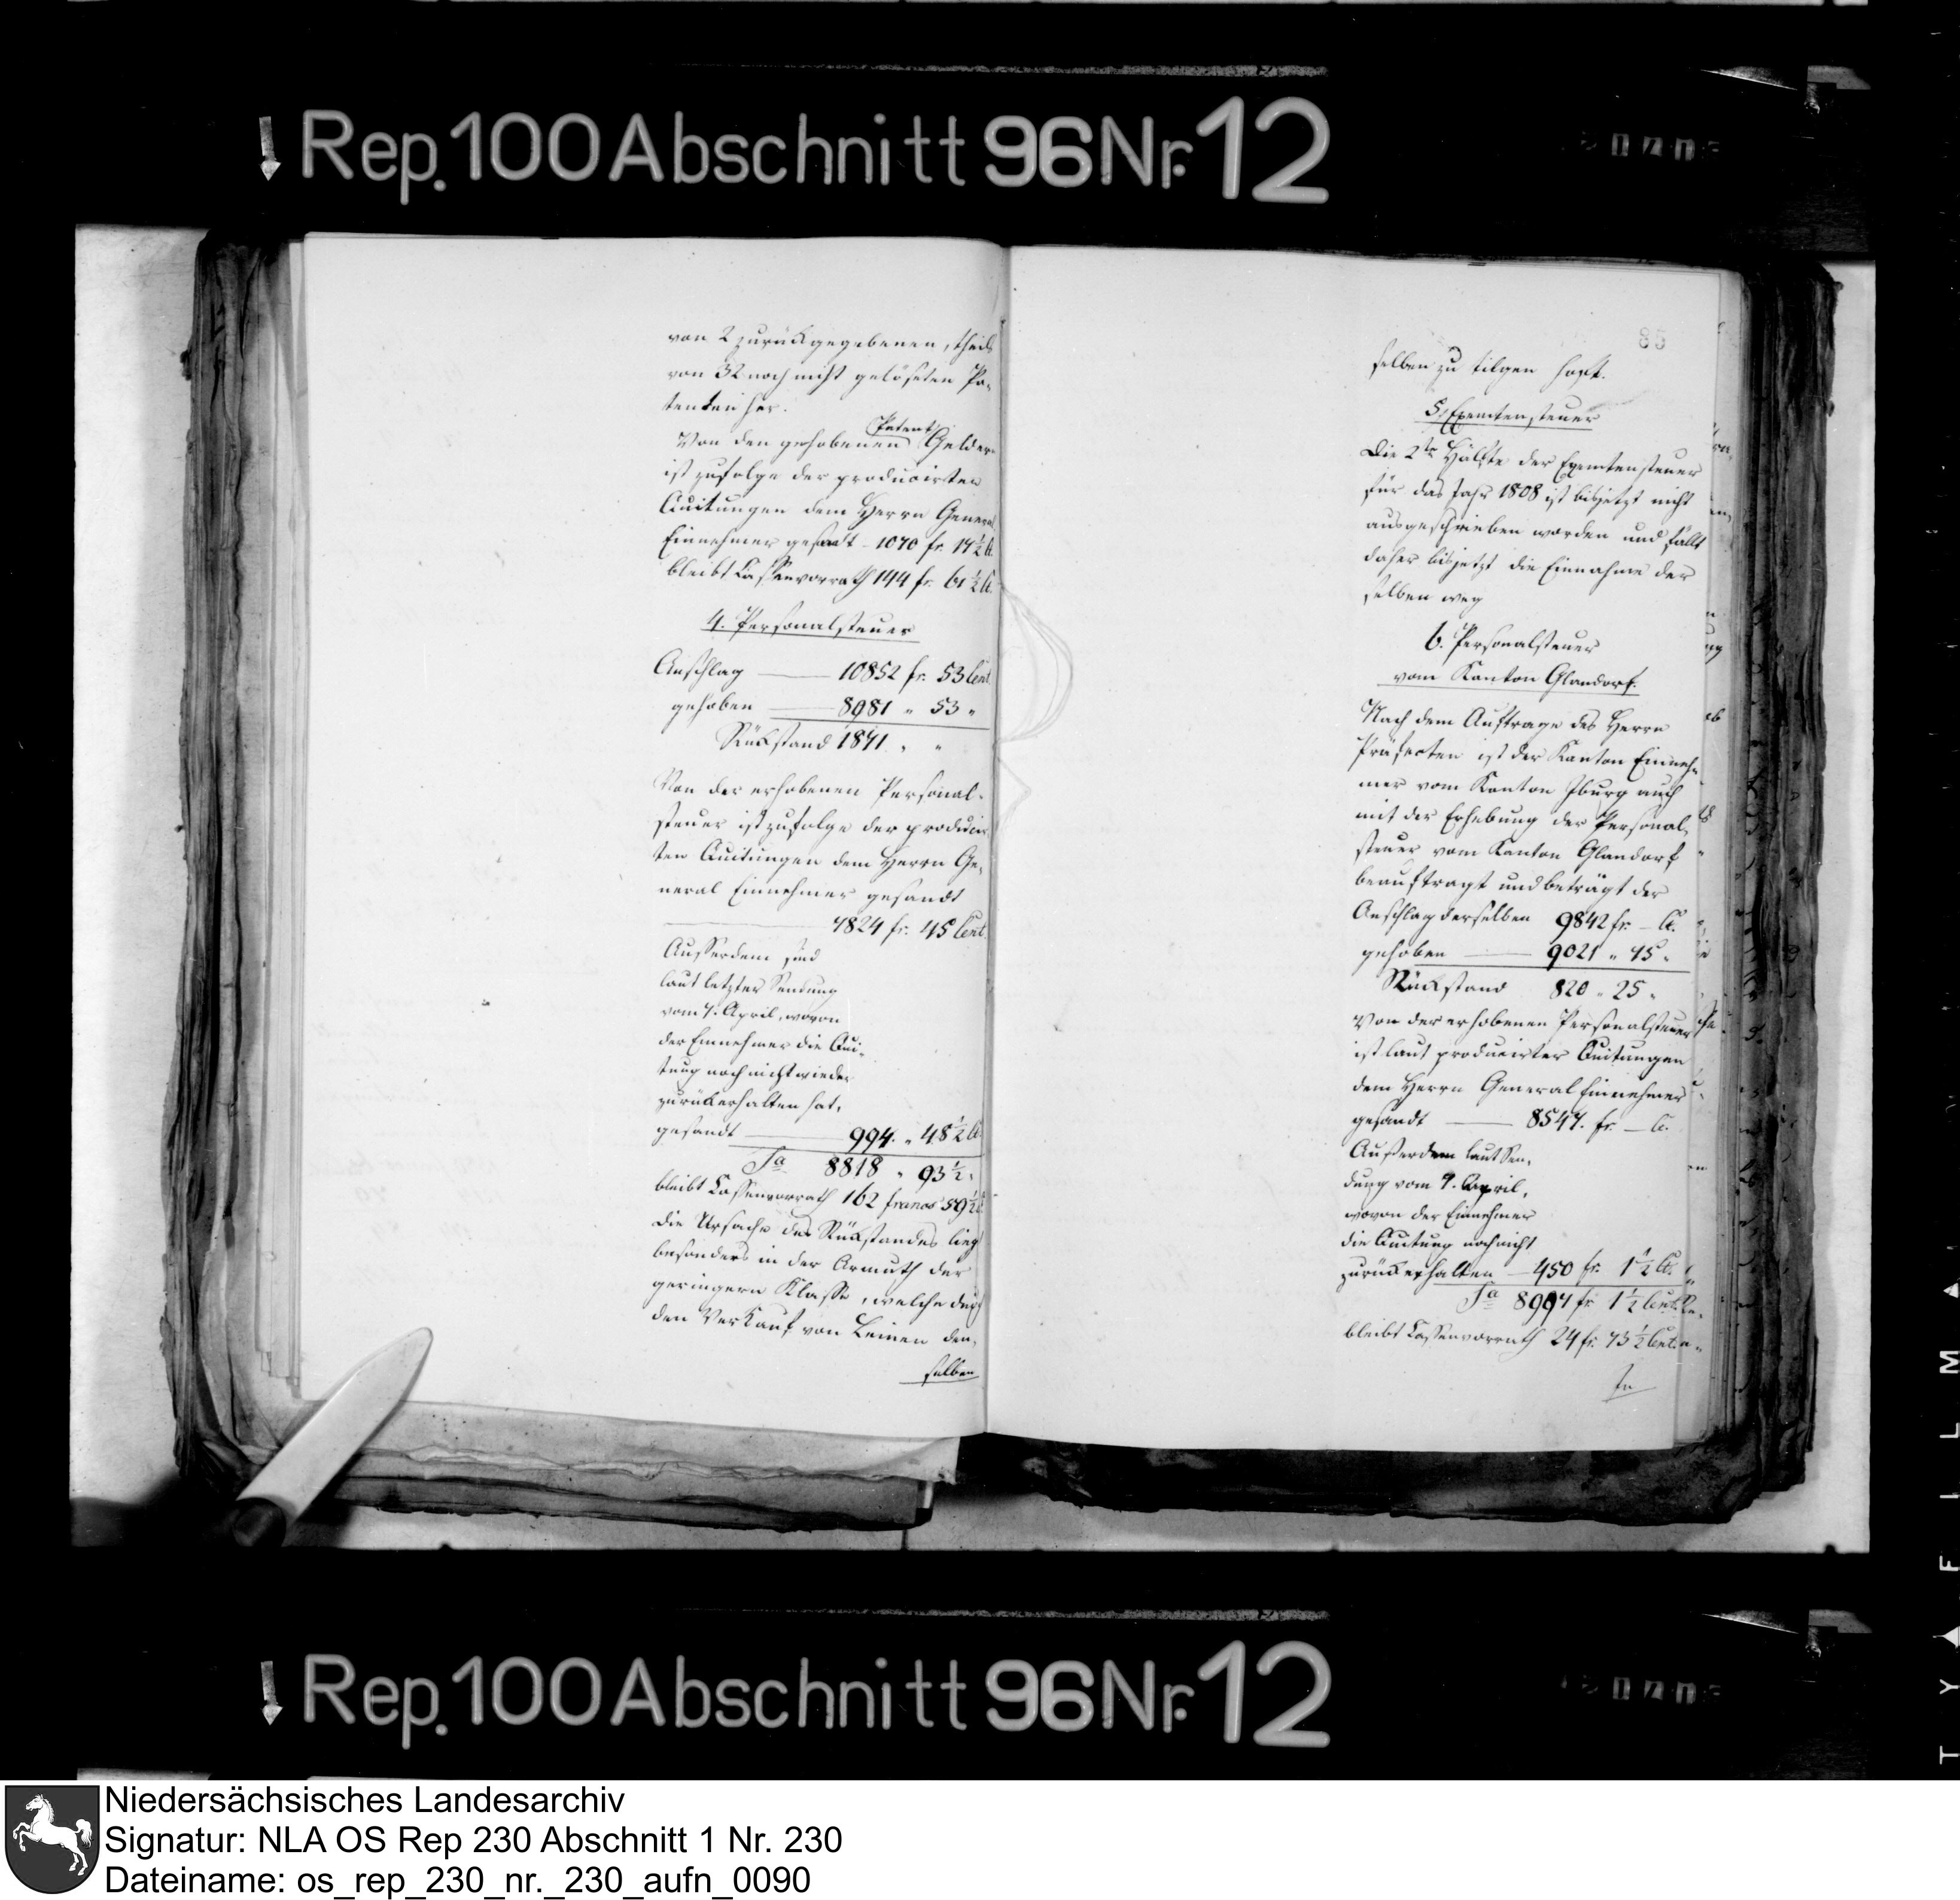 Rep. 100 Abschnitt 96 Nr. 12
von 2 zurückgegebenen, theils
von 32 noch nicht gelöseten Pa-
tenten her.
Von den gehobenen Patent Gelder
ist zufolge der producirten
Quitungen dem Herrn General
Einnehmer gesandt - 1070 fr. 17½ C.
bleibt Cassenvorrath 144 fr. 61½ C.
4. Personalsteuer
Anschlag 10852 fr. 53 Cent.
gehoben 8981 " 53 "
Rükstand 1871 " "
Von der erhobenen Personal-
steuer ist zufolge der producir-
ten Quitungen dem Herrn Ge-
neral Einnehmer gesandt
7824 fr. 45 Cent.
Ausserdem sind
laut letzter Sendung
vom 7. April, wovon
der Einnehmer die Qui-
tung noch nicht wieder
zurükerhalten hat,
gesandt 994 " 48½ C.
Sa 8818 " 93½ "
bleibt Cassenvorrath 162 francs 59½ C.
Die Ursache des Rükstandes liegt
besonders in der Armuth der
geringern Klasse, welche durch
den Verkauf von Leinen den-
selben
85
selben zu tilgen hoft.
5. Exemtensteuer
Die 2te Hälfte der Exemtensteuer
für das Jahr 1808 ist bis jetzt nicht
ausgeschrieben worden und fällt
daher bis jetzt die Einnahme der
selben weg
6. Personalsteuer
vom Kanton Glandorf.
Nach dem Auftrage des Herrn
Präfecten ist der Kanton Einneh-
mer vom Kanton Iburg auch
mit der Erhebung der Personal-
steuer vom Kanton Glandorf
beauftragt und beträgt der
Anschlag derselben 9842 fr. - C.
gehoben 9021 " 75 "
Rükstand 820 " 25 "
Von der erhobenen Personalsteuer
ist laut producirter Quitungen
dem Herrn General Einnehmer
gesandt 8547 fr. - C.
Ausserdem laut Sen-
dung vom 7. April,
wovon der Einnehmer
die Quitung noch nicht
zurükerhalten - 450 fr. 1½ C.
Sa 8997 fr. 1½ Cent.
bleibt Cassenvorrath 24 fr. 73½ Cent.
Rep. 100 Abschnitt 96 Nr. 12
Niedersächsisches Landesarchiv
Signatur: NLA OS Rep 230 Abschnitt 1 Nr. 230
Dateiname: os_rep_230_nr._230_aufn_0090